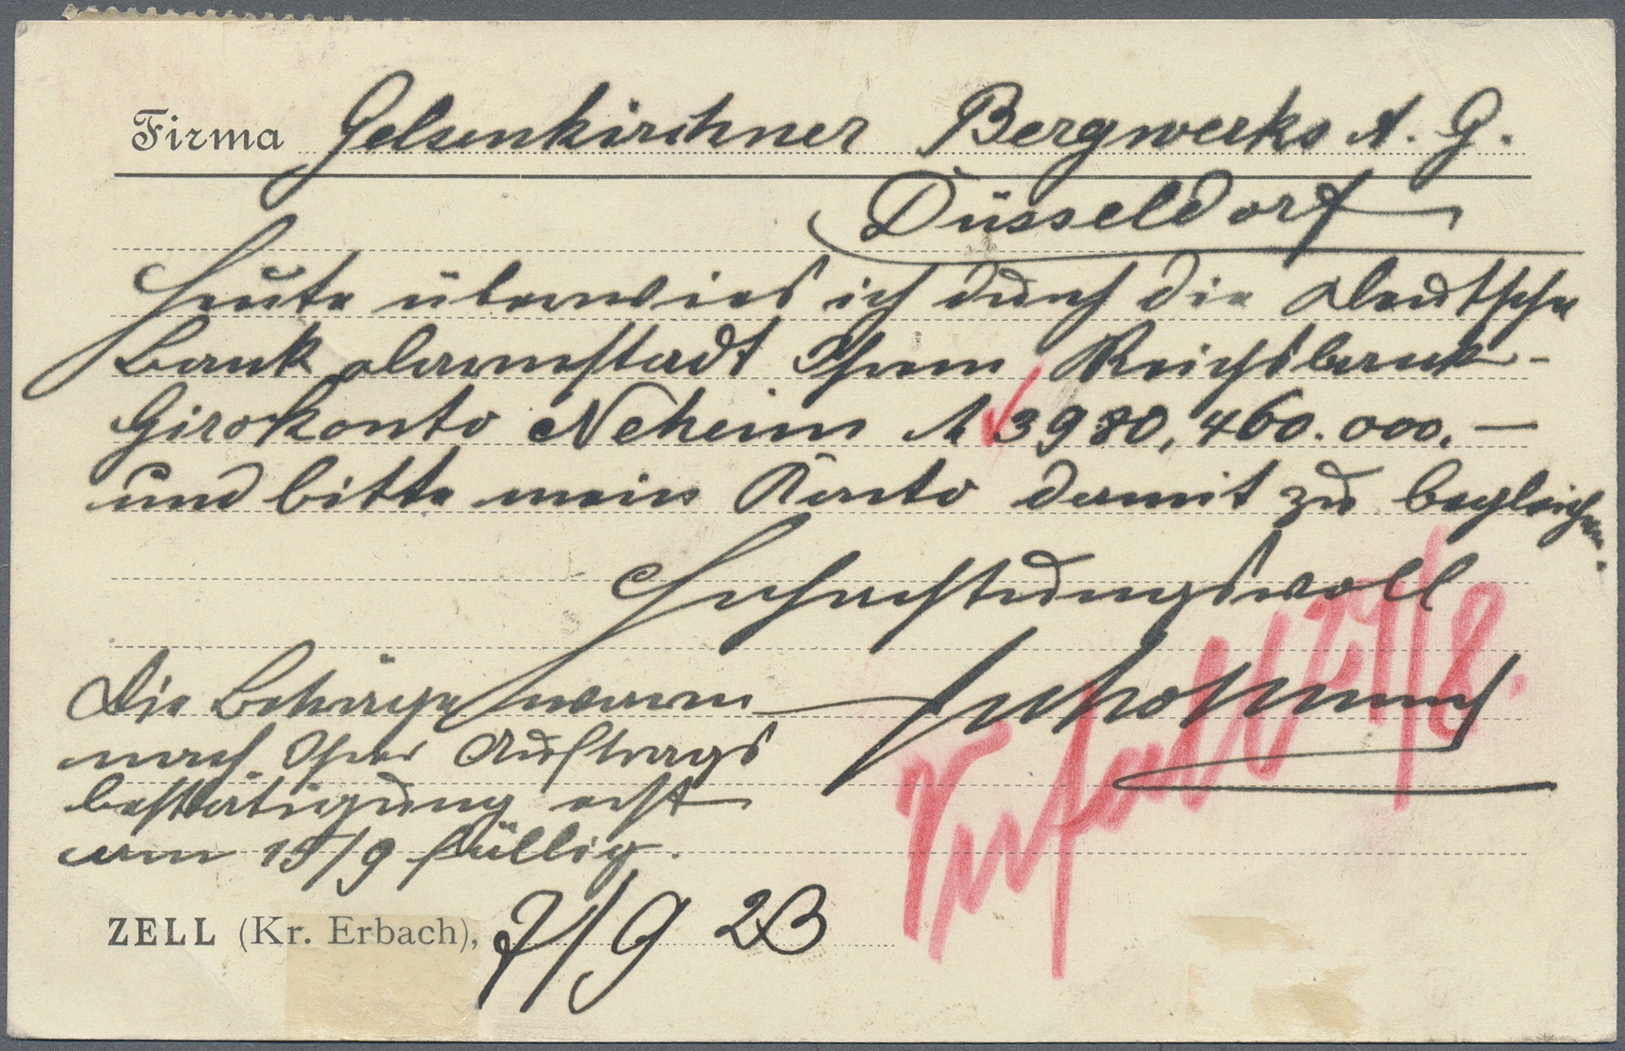 Firma Gelsenkirchner Bergwerks A. G.
Düsseldorf
Heute überwies ich durch die Deutsche
Bank Darmstadt Ihrem Reichsbank-
Girokonto Neheim M 3980,460.000.—
und bitte mein Konto damit zu begleichen.
Hochachtungsvoll
Die Beträge waren
nach Ihrer Auftrags
bestätigung erst
am 15/9 fällig.
Verfall 27/8.
ZELL (Kr. Erbach), 7/9 23